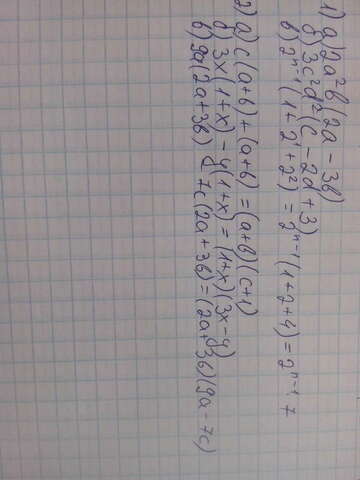 1) а) 2a²b(2a - 3b)
б) 3c²d²(c - 2d + 3)
в) 2ⁿ⁻¹(1+2¹+2²) = 2ⁿ⁻¹(1+2+4) = 2ⁿ⁻¹ · 7
2) а) c(a+b) + (a+b) = (a+b)(c+1)
б) 3x(1+x) - y(1+x) = (1+x)(3x-y)
в) 9a(2a+3b) - 7c(2a+3b) = (2a+3b)(9a-7c)